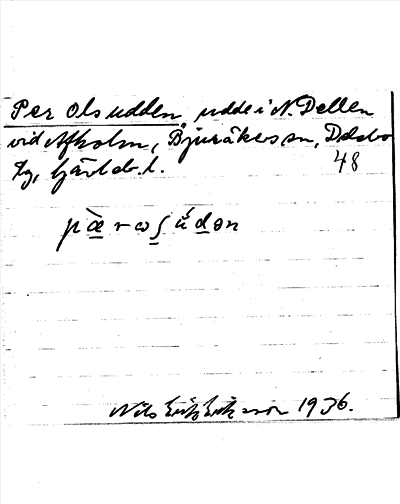 Per Ols udden, udde i N. Dellen
vid Afholm, Bjuråkers sn, Delsbo
tg, Gävleb. l. 48
pæ̀rωʃʉ́dən
Nils Eriksson 1936.